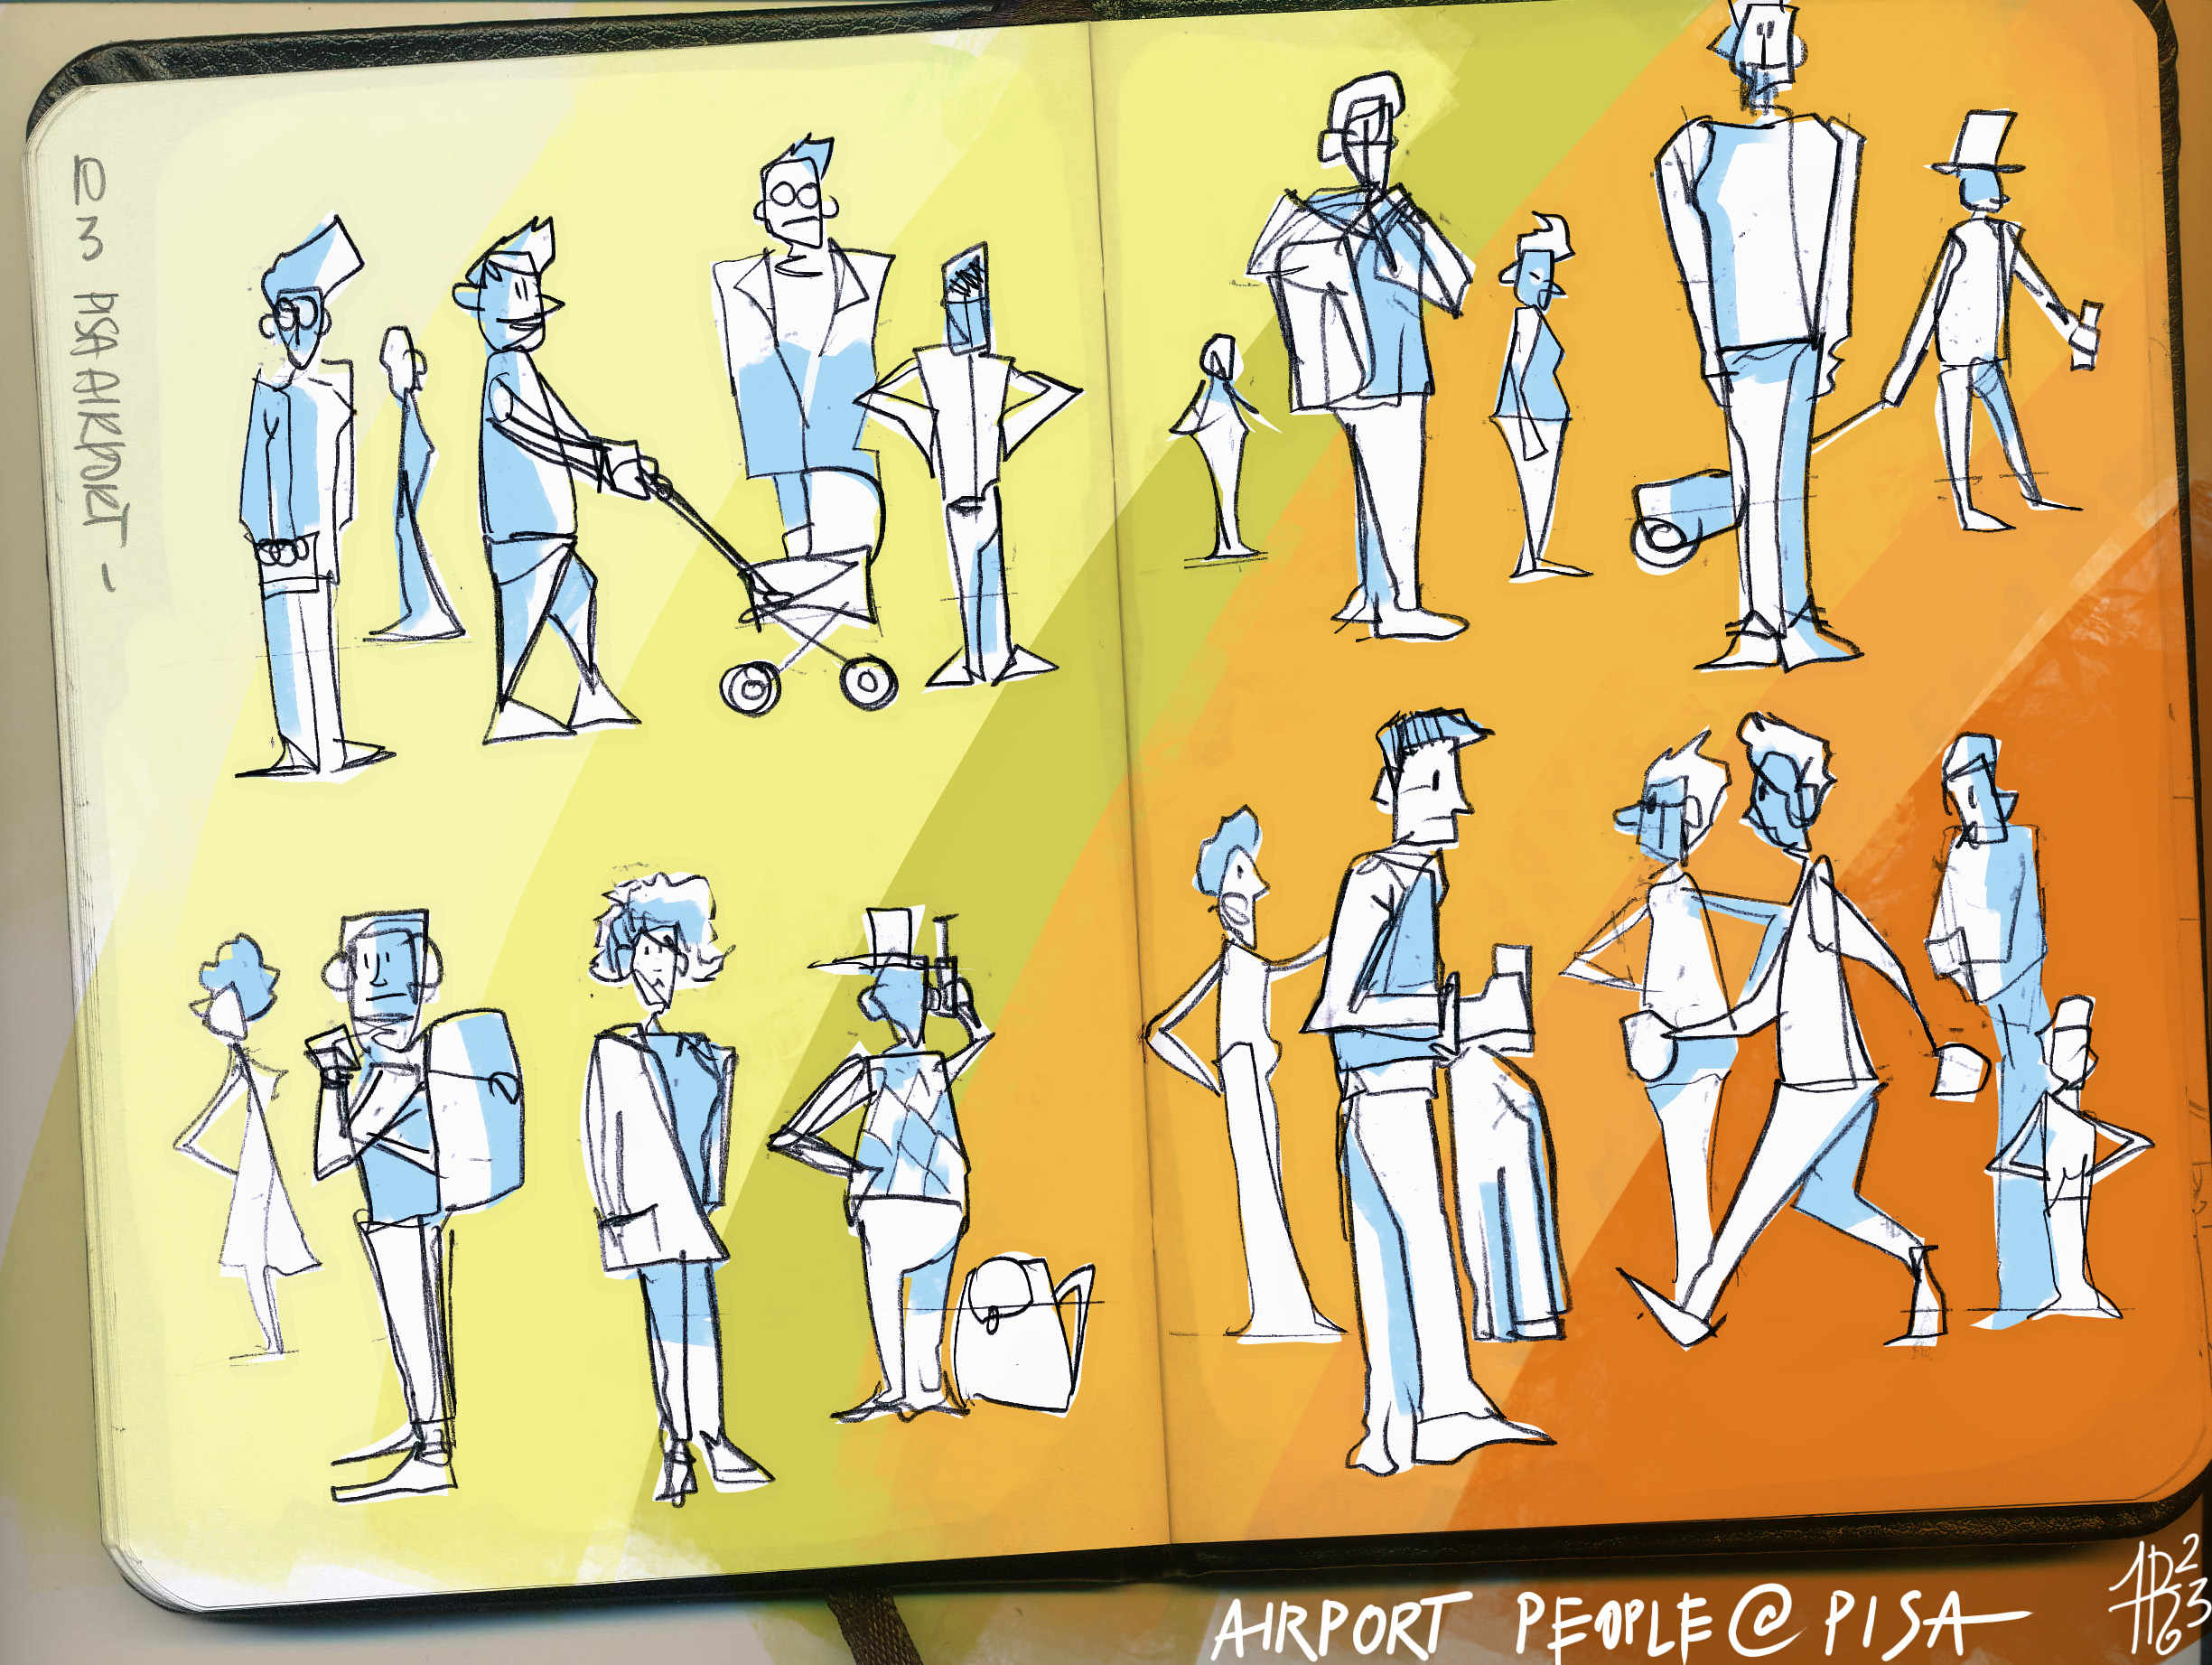 23 PISA AIRPORT -
AIRPORT PEOPLE @ PISA